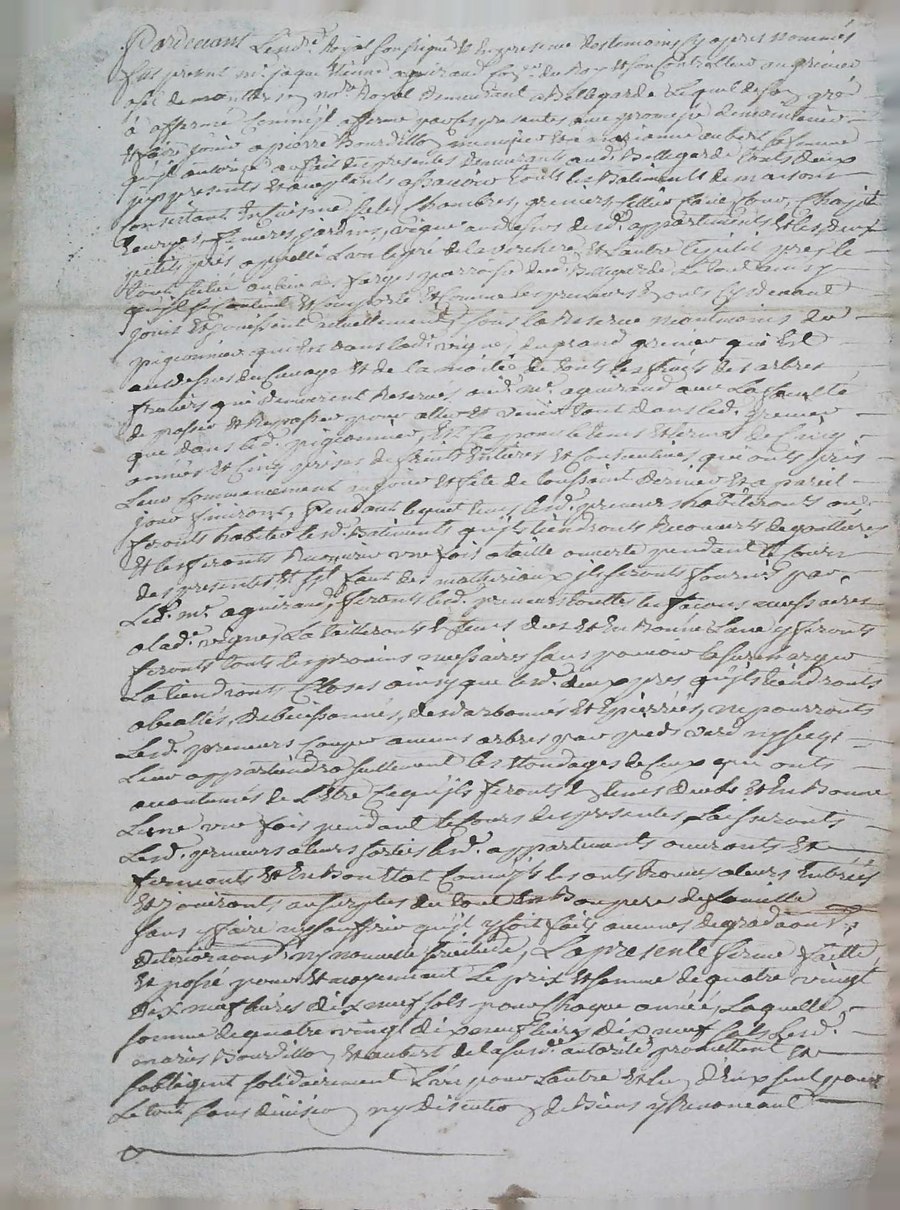 Pardevant Le no.re Royal soussigné Et En presence des temoins cy apres nommés
fut present m.r jaque Etienne aguiraud du Roy Et son Controlleur au grenier
a sel de no.re Royal demeurant a Bellegarde Lequel de son gré
à affermé Comme jl afferme par ces presentes avec promesse de maintenir
Et faire jouir a pierre Bourdillon Et a marianne aubert sa femme
qu'jl autorise au fait des presentes demeurants aud. Bellegarde touts deux
jcy presents Et acceptants assavoir touts les Batiments de maisons
Consistant En Cuisine selles Chambres, greniers, sellier, cave, Cour,
jardins, vigne au dessus desd. appartements, Et les deux
petits prés appellé L'un le pré de la Et L'autre pres le
parroisse dud. Bellegarde, Le tout ainsy
qu'jl se Contient Et Comporte Et Comme les preneurs En onts cy devant
jouis Et jouissent actuellement, sous la Reserve neantmoins du
pigeonnier qui Est dans lad. vigne, du grand grenier qui Est
au dessus du Cuvage Et de la moitié de touts les fruits des arbres
fruitiers qui demeurent Reservés, aud. m.r aguiraud avec La faculté
de passer Et Repasser pour aller Et venir tant dans led. grenier
que dans led. pigeonnier, Et Ce pour le tems Et terme de Cinq
années Et Cinq prises de fruits Entieres Et Consecutives qui onts pris
Leur Commencement au jour Et fete de toussaint dernier Et a pareil
jour finiront, Pendant lequel tems lesd. preneurs habiteronts ou
feronts habiter lesd. Batiments qu'jls tiendronts Recouverts de gouttieres
Et les feronts Recouvrir une fois a taille ouverte pendant le Cours
des presentes Et s'jl faut des materiaux jls seronts fournis par
Led. m.r aguiraud, feronts lesd. preneurs touttes les façons necessaires
a lad. vigne, La tailleronts En tems deu Et En Bonne Lune y feronts
feronts touts les provins necessaires sans pouvoir
La tiendronts Close ainsy que lesd. deux prés qu'jls tiendronts
debuissonnés, desdarbonnés Et Epierrés, ne pourronts
Lesd. preneurs Couper aucuns arbres par pied verd ny secq
Leur appartiendra seullement les Etondages de Ceux qui onts
accoutumés de L'Etre Ce qu'jls feronts En tems deubt Et En Bonne
Lune une fois pendant le Cours des presentes, Laisseronts
Lesd. preneurs a leurs sorties lesd. appartements ouvrants Et
fermants Et En Bon Etat Comme jls les onts trouvés a leurs Entrées
Et jouiront au surplus du tout En Bon pere de famille
sans y faire ny souffrir qu'jl y soit fait aucunes degradaons
deterioraons ny nouvelle servitude, La presente ferme faitte
Et passé pour Et moyennant Le prix Et somme de quatre vingt
dix neuf livres dix neuf sols pour Chaque année, Laquelle
somme de quatre vingt dix neuf livres dix neuf sols Lesd.
mariés Bourdillon Et aubert de la susd. autorité promettent Et
s'obligent solidairement L'un pour L'autre Et Lun d'Eux seul pour
Le tout sans division ny discution de Biens y Renonceant